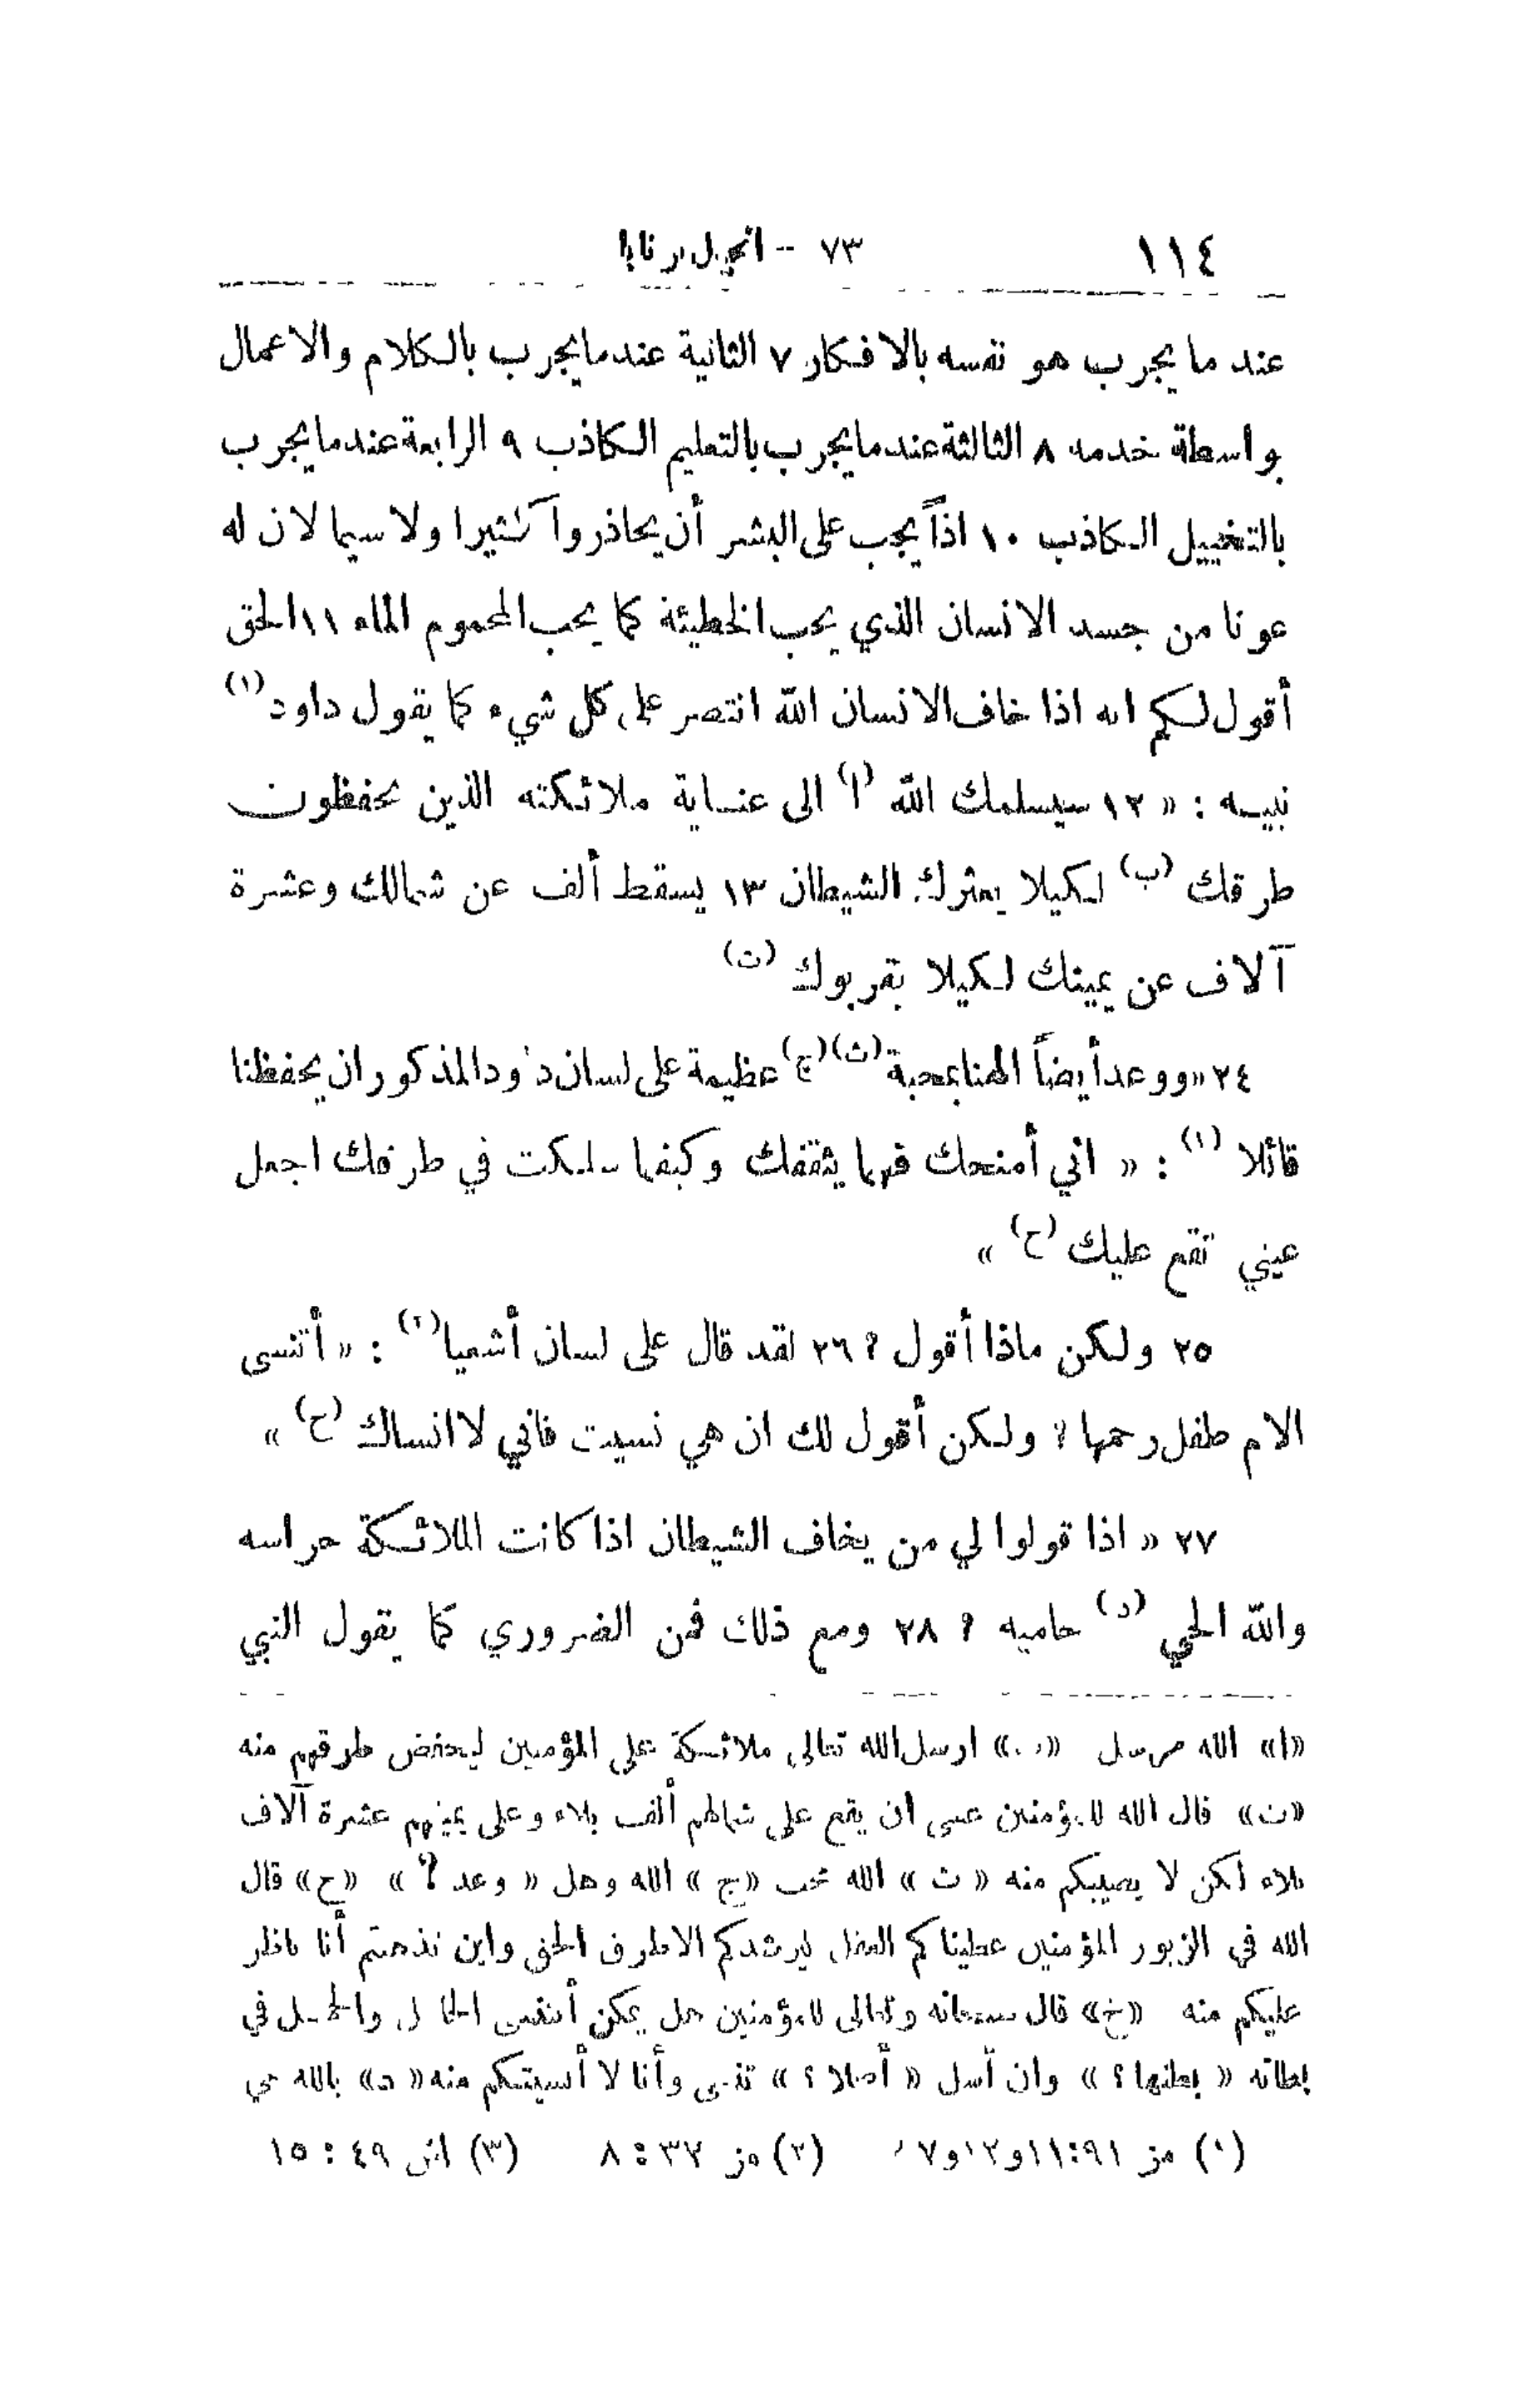 ١١٤ ٧٣ - انجيل برنابا
عند ما يجرب هو نفسه بالافكار ٧ الثانية عندما يجرب بالكلام والاعمال
بواسطة خدمه ٨ الثالثة عندما يجرب بالتعليم الكاذب ٩ الرابعة عندما يجرب
بالتخييل الكاذب ١٠ اذاً يجب على البشر أن يحاذروا كثيرا ولا سيما لان له
عونا من جسد الانسان الذي يحب الخطيئة كما يحب المحموم الماء ١١ الحق
أقول لكم انه اذا خاف الانسان الله انتصر على كل شيء كما يقول داود (١)
نبيـه : « ١٢ سيسلمك الله (ا) الى عنـاية ملائكته الذين يحفظون
طرقك (ب) لكيلا يعثرك الشيطان ١٣ يسقط ألف عن شمالك وعشرة
آلاف عن يمينك لكيلا يقربوك (ت)
٢٤ « ووعد أيضاً الهنا بمحبة (ث) (ج) عظيمة على لسان داود المذكور ان يحفظنا
قائلا (٢) : « اني أمنحك فهما يثقفك وكيفما سلكت في طرقك اجعل
عيني تقع عليك (ح) »
٢٥ ولكن ماذا أقول ؟ ٢٦ لقد قال على لسان أشعيا (٣) : « أتنسى
الام طفل رحمها ؟ ولكن أقول لك ان هي نسيت فاني لا انساك (خ) »
٢٧ « اذا قولوا لي من يخاف الشيطان اذا كانت الملائكة حراسه
والله الحي (د) حاميه ؟ ٢٨ ومع ذلك فمن الضروري كما يقول النبي
«ا» الله مرسل «ب» ارسل الله تعالى ملائكة على المؤمنين ليحفض طرقهم منه
«ت» قال الله للمؤمنين عسى ان يقع على شمالهم ألف بلاء وعلى يمينهم عشرة آلاف
بلاء لكن لا يصيبكم منه « ث » الله محب « ج » الله وهل « وعد ؟ » «ح» قال
الله في الزبور المؤمنين عطيناكم العقل ليرشدكم الاطرق الحق واين تذهبتم أنا ناظر
عليكم منه «خ» قال سبحانه وتعالى للمؤمنين هل يمكن أنتنسى الحامل والحمل في
بطانه « بطنها ؟ » وان أسل « أصلا ؟ » تنسى وأنا لا أنسيتكم منه « د» بالله حي
(١) مز ١١:٩١ و١٢ و٧ (٢) مز ٣٢ : ٨ (٣) اش ٤٩ : ١٥